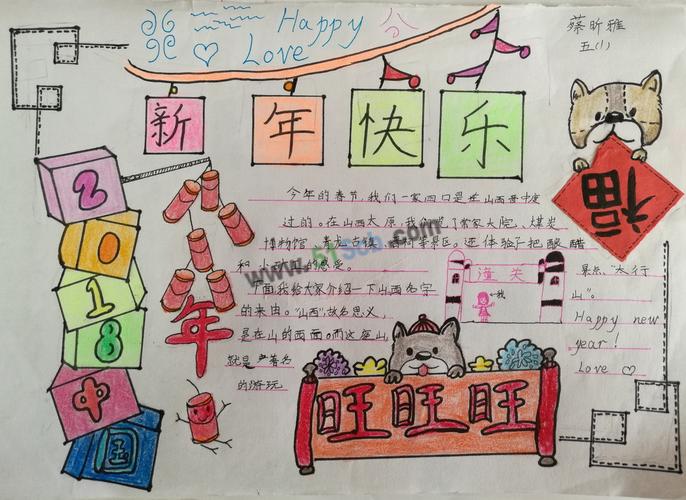 Happy
Love
蔡昕雅
五(1)
新年快乐
2018
中国
年
福
今年的春节,我们一家四口是在山西
过的。在山西太原,我们
常家大院、煤炭
博物馆、青龙古镇
还体验了把酿醋
和
的感受。
下面我给大家介绍一下山西名字
的来由。“山西”,故名思义,
是在山的西面。而这座山
就是
著名
的游玩
潼关
我
景点“太行
山”。
Happy new
year!
Love
旺旺旺
www.51scb.com